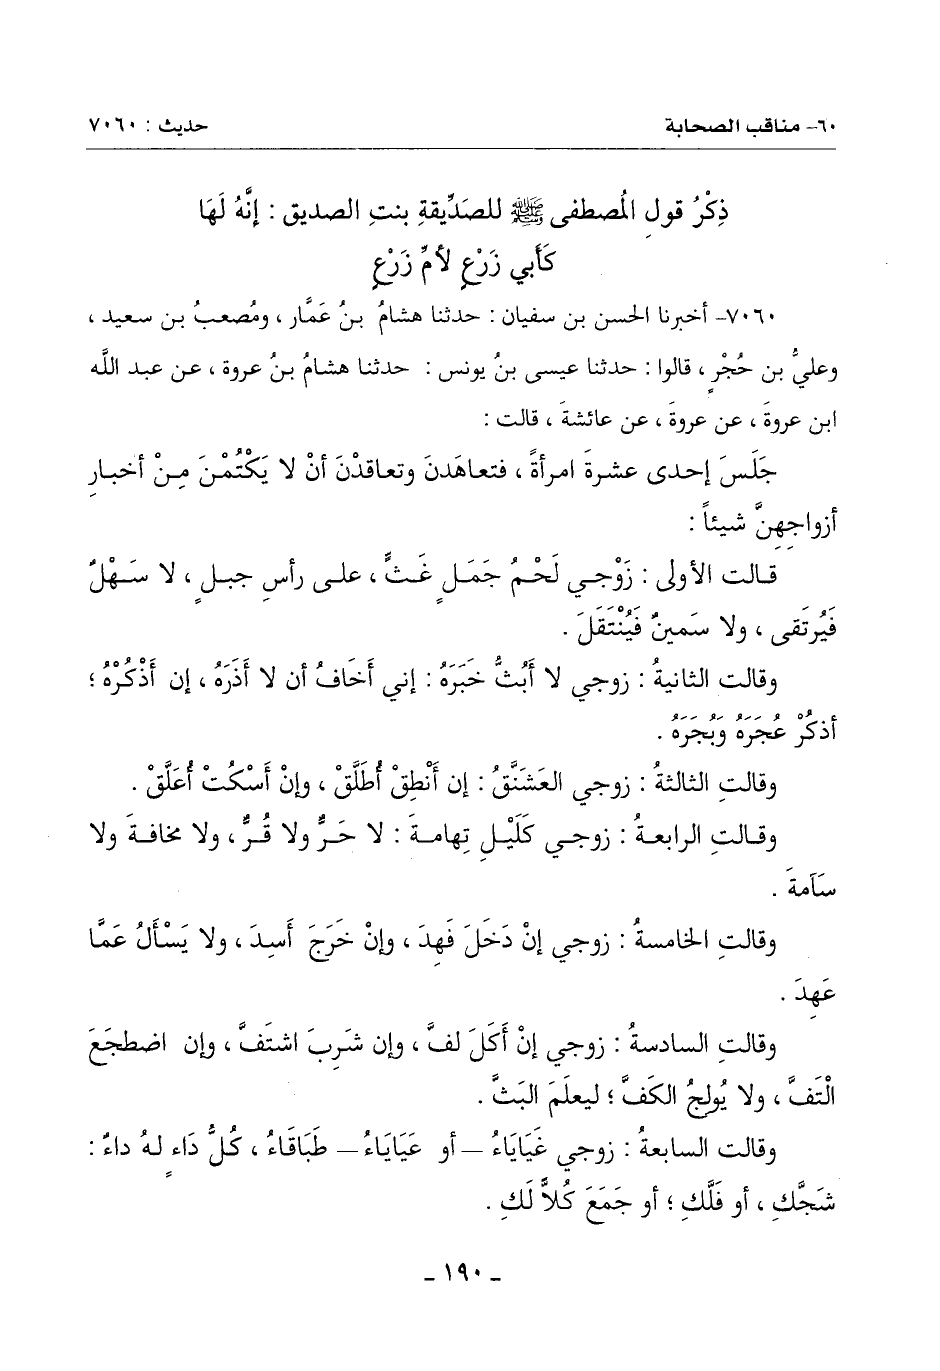 ٦٠- مناقب الصحابة حديث : ٧٠٦٠
ذِكْرُ قولِ المُصطفى ﷺ للصَدِّيقةِ بنتِ الصديق : إنَّهُ لَهَا
كَأَبي زَرْعٍ لأمِّ زَرْعٍ
٧٠٦٠- أخبرنا الحسن بن سفيان : حدثنا هشامُ بنُ عَمَّار ، ومُصعبُ بن سعيد ،
وعليُّ بن حُجْرٍ ، قالوا : حدثنا عيسى بنُ يونس : حدثنا هشامُ بنُ عروة ، عن عبد الله
ابن عروةَ ، عن عروةَ ، عن عائشةَ ، قالت :
جَلَسَ إحدى عشرةَ امرأةً ، فتعاهَدنَ وتعاقدْنَ أنْ لا يَكْتُمْنَ مِنْ أخبارِ
أزواجِهِنَّ شيئاً :
قالت الأولى : زَوْجي لَحْمُ جَمَلٍ غَثٌّ ، على رأسِ جبلٍ ، لا سَهْلٌ
فَيُرتَقى ، ولا سَمينٌ فَيُنْتَقَلَ .
وقالت الثانيةُ : زوجي لا أَبُثُّ خَبَرَهُ : إني أَخَافُ أن لا أَذَرَهُ ، إن أَذْكُرْهُ ؛
أذكُرْ عُجَرَهُ وَبُجَرَهُ .
وقالتِ الثالثةُ : زوجي العَشَنَّقُ : إن أَنْطِقْ أُطَلَّقْ ، وإنْ أَسْكُتْ أُعَلَّقْ .
وقالتِ الرابعةُ : زوجي كَلَيْلِ تِهامةَ : لا حَرٌّ ولا قُرٌّ ، ولا مخافةَ ولا
سَآمةَ .
وقالتِ الخامسةُ : زوجي إنْ دَخَلَ فَهِدَ ، وإنْ خَرَجَ أَسِدَ ، ولا يَسْأَلُ عَمَّا
عَهِدَ .
وقالتِ السادسةُ : زوجي إنْ أَكَلَ لفَّ ، وإن شَرِبَ اشتَفَّ ، وإن اضطجَعَ
الْتَفَّ ، ولا يُولِجُ الكَفَّ ؛ ليعلَمَ البَثَّ .
وقالت السابعةُ : زوجي غَيَايَاءُ – أو عَيَايَاءُ – طَبَاقَاءُ ، كُلُّ دَاءٍ لهُ داءٌ :
شَجَّكِ ، أو فَلَّكِ ؛ أو جَمَعَ كُلاًّ لَكِ .
- ١٩٠ -